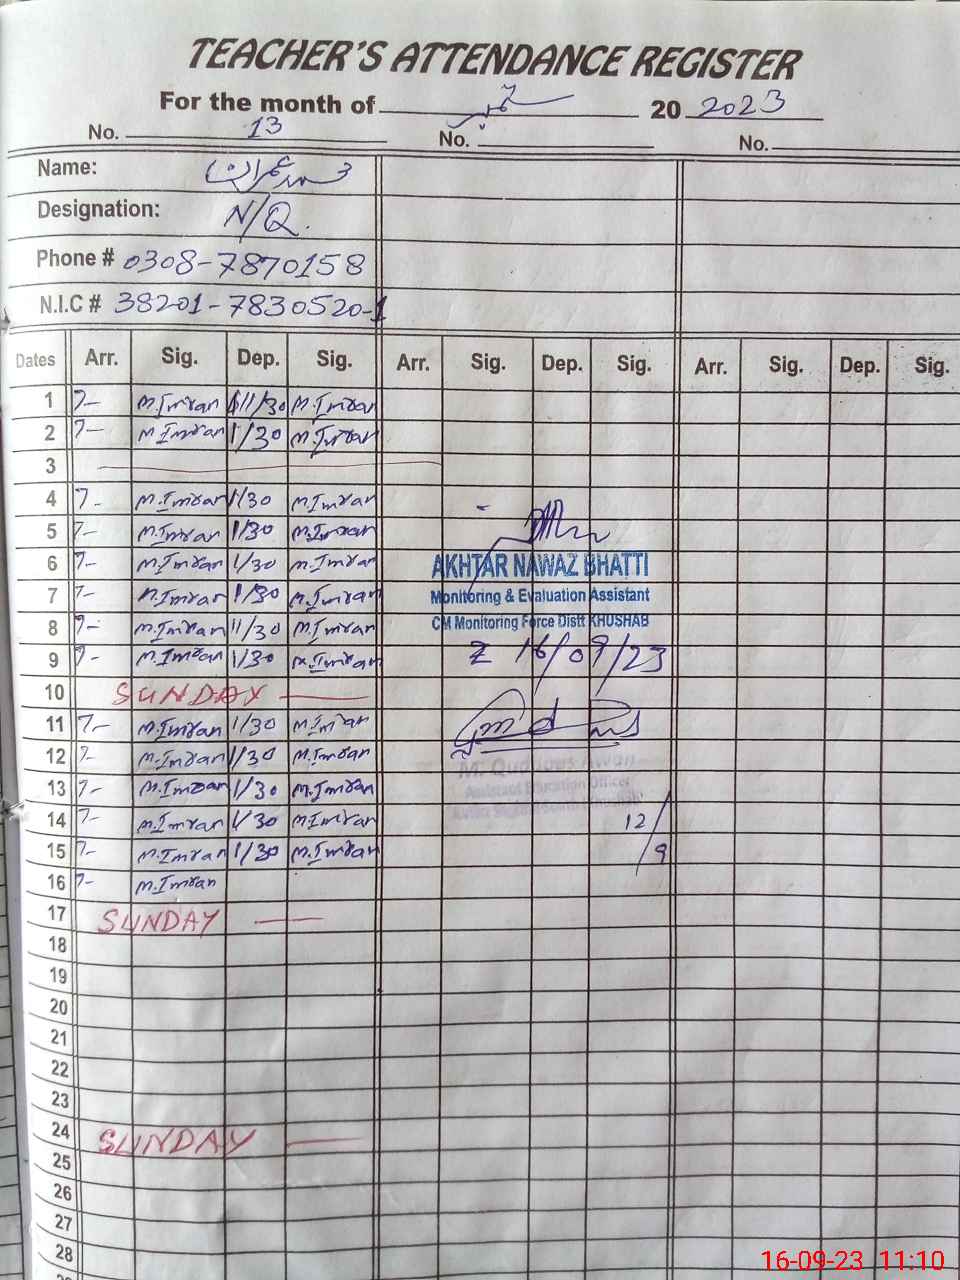 TEACHER'S ATTENDANCE REGISTER
For the month of ستمبر 20 2023
No. 13 No. No.
Name: محمد عمران
Designation: N/Q.
Phone # 0308-7870158
N.I.C # 38201-7830520-1
Dates Arr. Sig. Dep. Sig. Arr. Sig. Dep. Sig. Arr. Sig. Dep. Sig.
1 7- M.Imran 11/30 M.Imran
2 7- M.Imran 1/30 M.Imran
3
4 7- M.Imran 1/30 M.Imran
5 7- M.Imran 1/30 M.Imran
6 7- M.Imran 1/30 M.Imran
7 7- M.Imran 1/30 M.Imran
8 7- M.Imran 11/30 M.Imran
9 7- M.Imran 1/30 M.Imran
10 SUNDAY
11 7- M.Imran 1/30 M.Imran
12 7- M.Imran 1/30 M.Imran
13 7- M.Imran 1/30 M.Imran
14 7- M.Imran 1/30 M.Imran
15 7- M.Imran 1/30 M.Imran
16 7- M.Imran
17 SUNDAY
18
19
20
21
22
23
24 SUNDAY
25
26
27
28
AKHTAR NAWAZ BHATTI
Monitoring & Evaluation Assistant
CM Monitoring Force Distt KHUSHAB
16/09/23
M. Quddus Awan
Assistant Education Officer
12/9
16-09-23 11:10